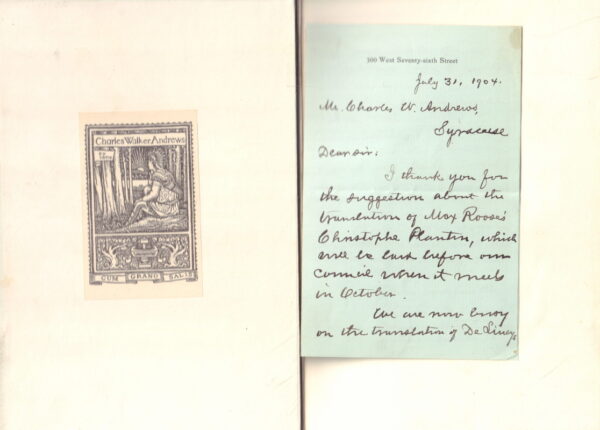 Charles Walker Andrews
CUM GRANO SALIS
300 West Seventy-sixth Street
July 31, 1904.
Mr. Charles W. Andrews,
Syracuse
Dear sir:
I thank you for
the suggestion about the
translation of Max Rooses'
Christophe Plantin, which
will be laid before our
council when it meets
in October.
We are now busy
on the translation of De Vinny's